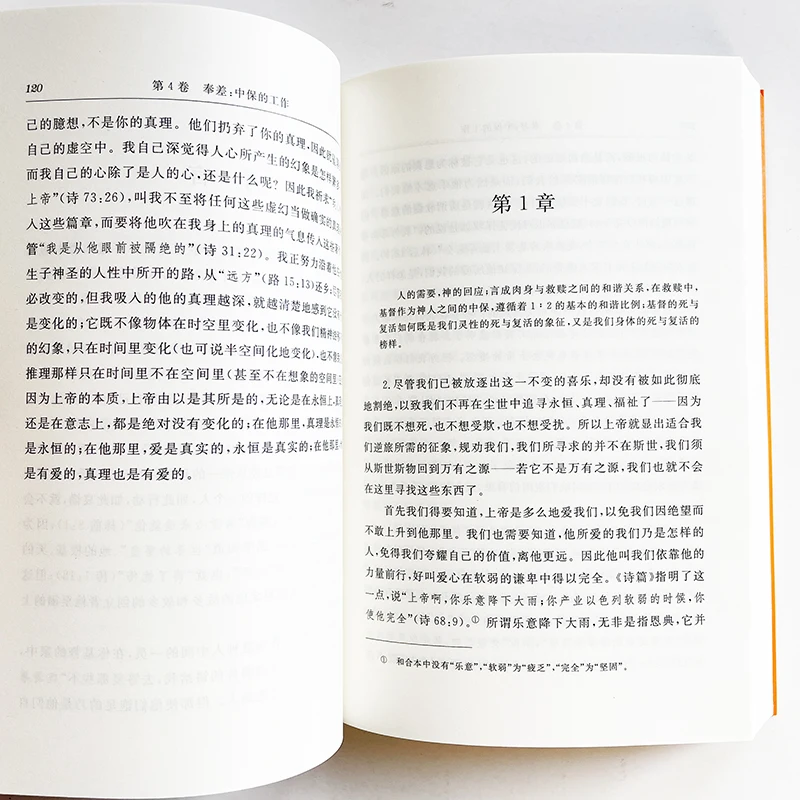 120
第4卷 奉差:中保的工作
己的臆想,不是你的真理。他们扔弃了你的真理,因此
自己的虚空中。我自己深觉得人心所产生的幻象是怎样
而我自己的心除了是人的心,还是什么呢?因此我祈求
上帝”(诗73:26),叫我不至将任何这些虚幻当做确实的真
人这些篇章,而要将他吹在我身上的真理的气息传入这些
管“我是从他眼前被隔绝的”(诗31:22)。我正努力沿着
生子神圣的人性中所开的路,从“远方”(路15:13)还乡;
必改变的,但我吸入的他的真理越深,就越清楚地感到它
是变化的;它既不像物体在时空里变化,也不像我们精神
的幻象,只在时间里变化(也可说半空间化地变化),也不像
推理那样只在时间里不在空间里(甚至不在想象的空间里
因为上帝的本质,上帝由以是其所是的,无论是在永恒上
还是在意志上,都是绝对没有变化的;在他那里,真理是永恒
是永恒的;在他那里,爱是真实的,永恒是真实的;在他那里
是有爱的,真理也是有爱的。
第1章
人的需要,神的回应;言成肉身与救赎之间的和谐关系,在救赎中,
基督作为神人之间的中保,遵循着1:2的基本的和谐比例;基督的死与
复活如何既是我们灵性的死与复活的象征,又是我们身体的死与复活的
榜样。
2.尽管我们已被放逐出这一不变的喜乐,却没有被如此彻底
地割绝,以致我们不再在尘世中追寻永恒、真理、福祉了——因为
我们既不想死,也不想受欺,也不想受扰。所以上帝就显出适合我
们逆旅所需的征象,规劝我们,我们所寻求的并不在斯世,我们须
从斯世斯物回到万有之源——若它不是万有之源,我们也就不会
在这里寻找这些东西了。
首先我们得要知道,上帝是多么地爱我们,以免我们因绝望而
不敢上升到他那里。我们也需要知道,他所爱的我们乃是怎样的
人,免得我们夸耀自己的价值,离他更远。因此他叫我们依靠他的
力量前行,好叫爱心在软弱的谦卑中得以完全。《诗篇》指明了这
一点,说“上帝啊,你乐意降下大雨;你产业以色列软弱的时候,你
使他完全”(诗68:9)。① 所谓乐意降下大雨,无非是指恩典,它并
① 和合本中没有“乐意”,“软弱”为“疲乏”,“完全”为“坚固”。